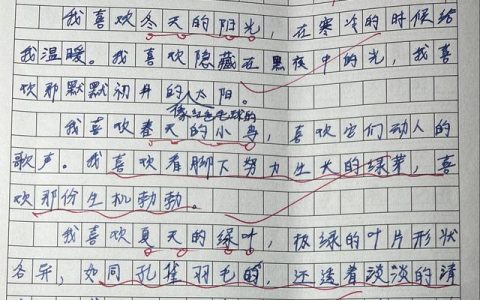 我喜欢冬天的阳光，在寒冷的时候给
我温暖。我喜欢隐藏在黑夜中的光，我喜
欢那默默初升的像红色毛球的太阳。
我喜欢春天的小鸟，喜欢它们动人的
歌声。我喜欢看脚下努力生长的绿芽，喜
欢那份生机勃勃。
我喜欢夏天的绿叶，极绿的叶片形状
各异，如同孔雀羽毛的，还透着淡淡的清